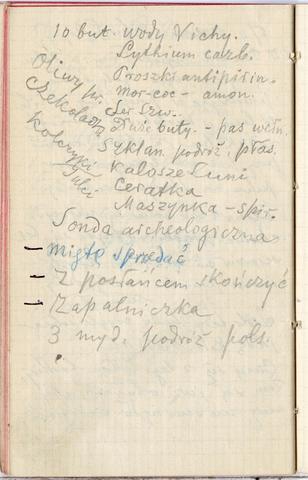 10 but. wody Vichy.
Lythium carb.
Proszki antipirin.
mor-coc - amon.
Ser szw.
Duże buty. - pas wełn.
Szklan. podróż. płas.
Kalosze Luni
Ceratka
Maszynka - spir.
Oliwy pr.
Czekolada
Kolczyki
Sonda archeologiczna
migtę sprzedać
Z posłańcem skończyć
Zapalniczka
3 myd. podróż pols.